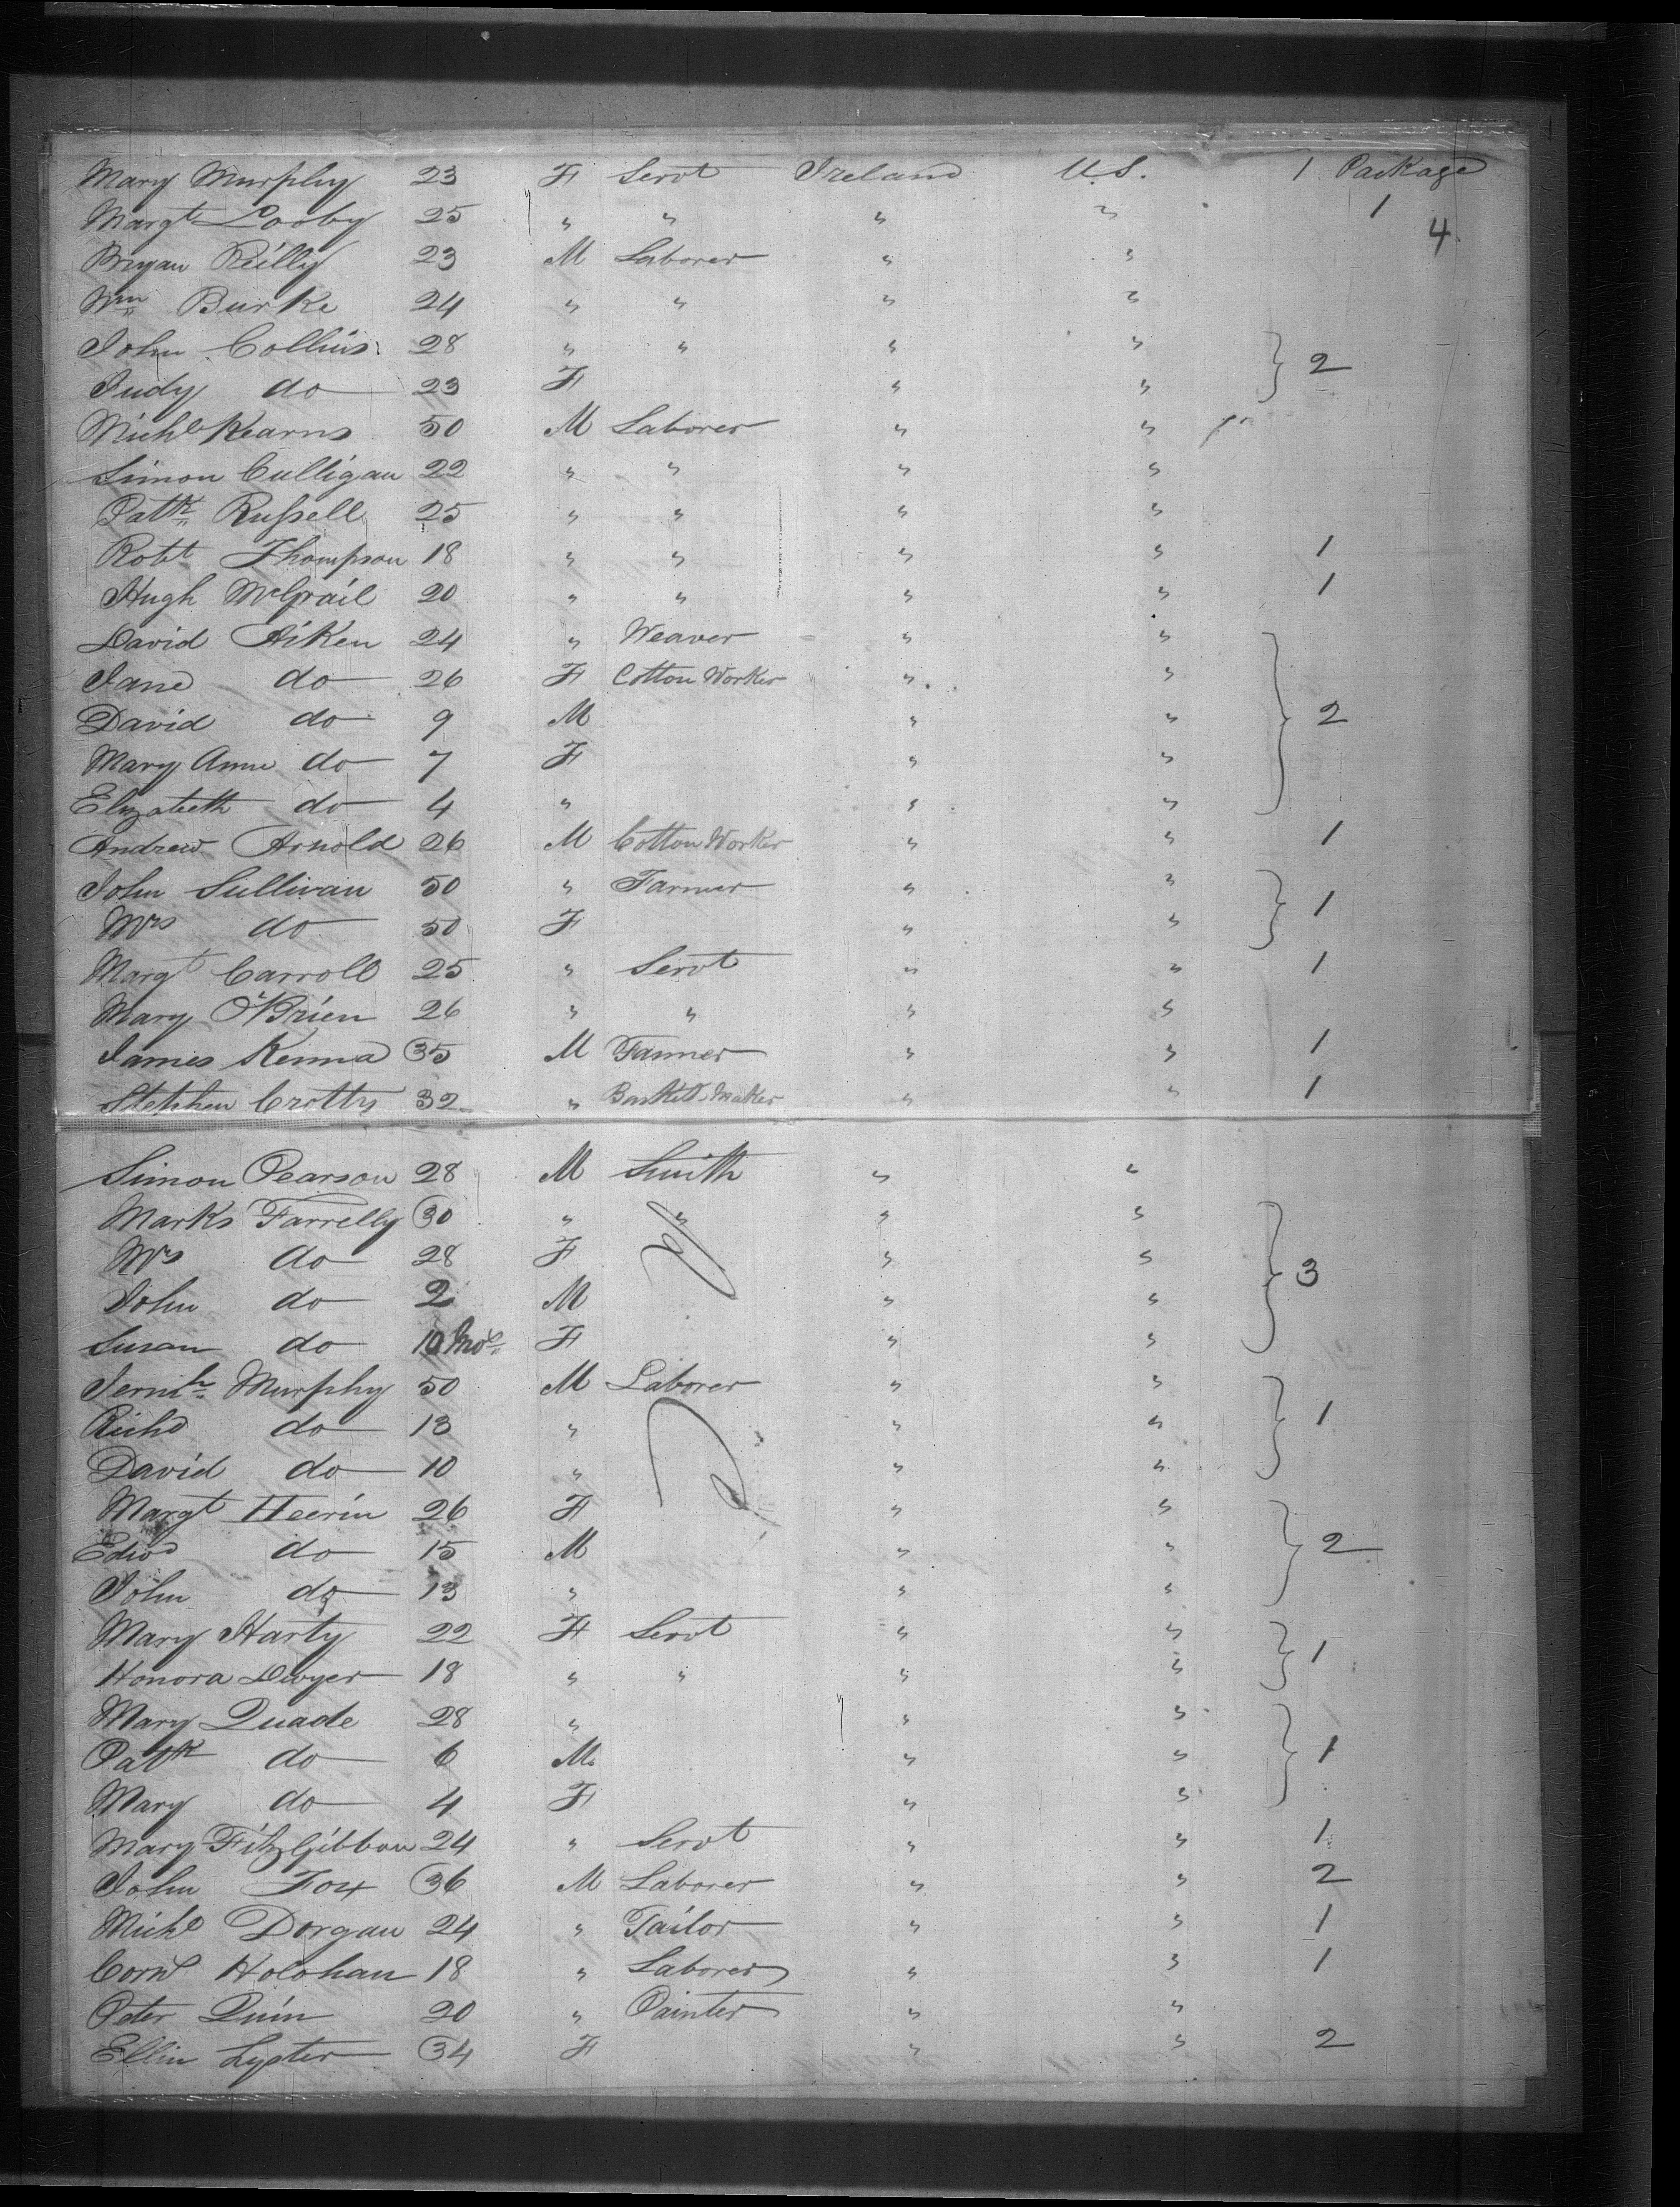 Mary Murphy 23 F Servt Ireland U.S. 1 Package
Margt Looby 25 " " " " 1
4
Bryan Reilly 23 M Laborer " "
Wm Burke 24 " " " "
John Collins 28 " " " "
Judy do 23 F " " } 2
Michl Kearns 50 M Laborer " "
Simon Culligan 22 " " " "
Patk Russell 25 " " " "
Robt Thompson 18 " " " " 1
Hugh McGrail 20 " " " " 1
David Aiken 24 " Weaver " "
Jane do 26 F Cotton Worker " "
David do 9 M " " } 2
Mary Anne do 7 F " "
Elizabeth do 4 " " "
Andrew Arnold 26 M Cotton Worker " " 1
John Sullivan 50 " Farmer " "
Mrs do 50 F " " } 1
Margt Carroll 25 " Servt " " 1
Mary O'Brien 26 " " " "
James Kenna 35 M Farmer " " 1
Stephen Crotty 32 " Baskett Maker " " 1
Simon Pearson 28 M Smith " "
Marks Farrelly 30 " " " "
Mrs do 28 F " " } 3
John do 2 M " "
Susan do 10 Mos F " "
Jermh Murphy 50 M Laborer " "
Richd do 13 " " " } 1
David do 10 " " "
Margt Heerin 26 F " "
Edwd do 15 M " " } 2
John do 13 " " "
Mary Harty 22 F Servt " "
Honora Dwyer 18 " " " " } 1
Mary Quade 28 " " "
Patk do 6 M " " } 1
Mary do 4 F " "
Mary FitzGibbon 24 " Servt " " 1
John Fox 36 M Laborer " " 2
Michl Dorgan 24 " Tailor " " 1
Cornl Holohan 18 " Laborer " " 1
Peter Quin 20 " Painter " "
Ellin Lyster 34 F " " 2